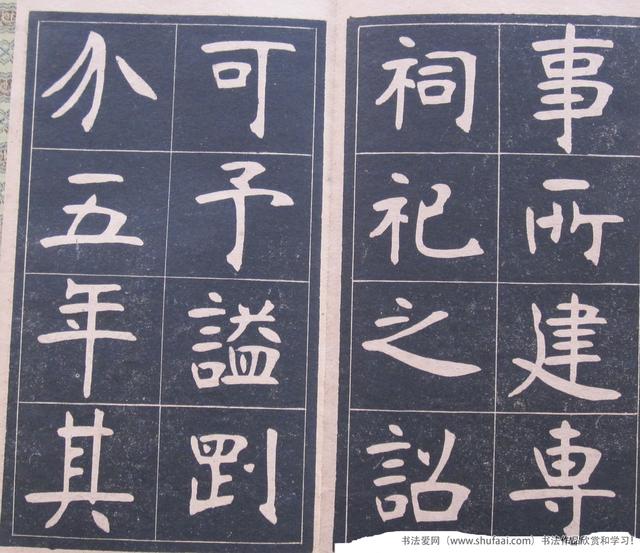 事所建専
祠祀之詔
可予謚㓻
介五年其
书法爱网（www.shufaai.com）书法作品欣赏和学习!